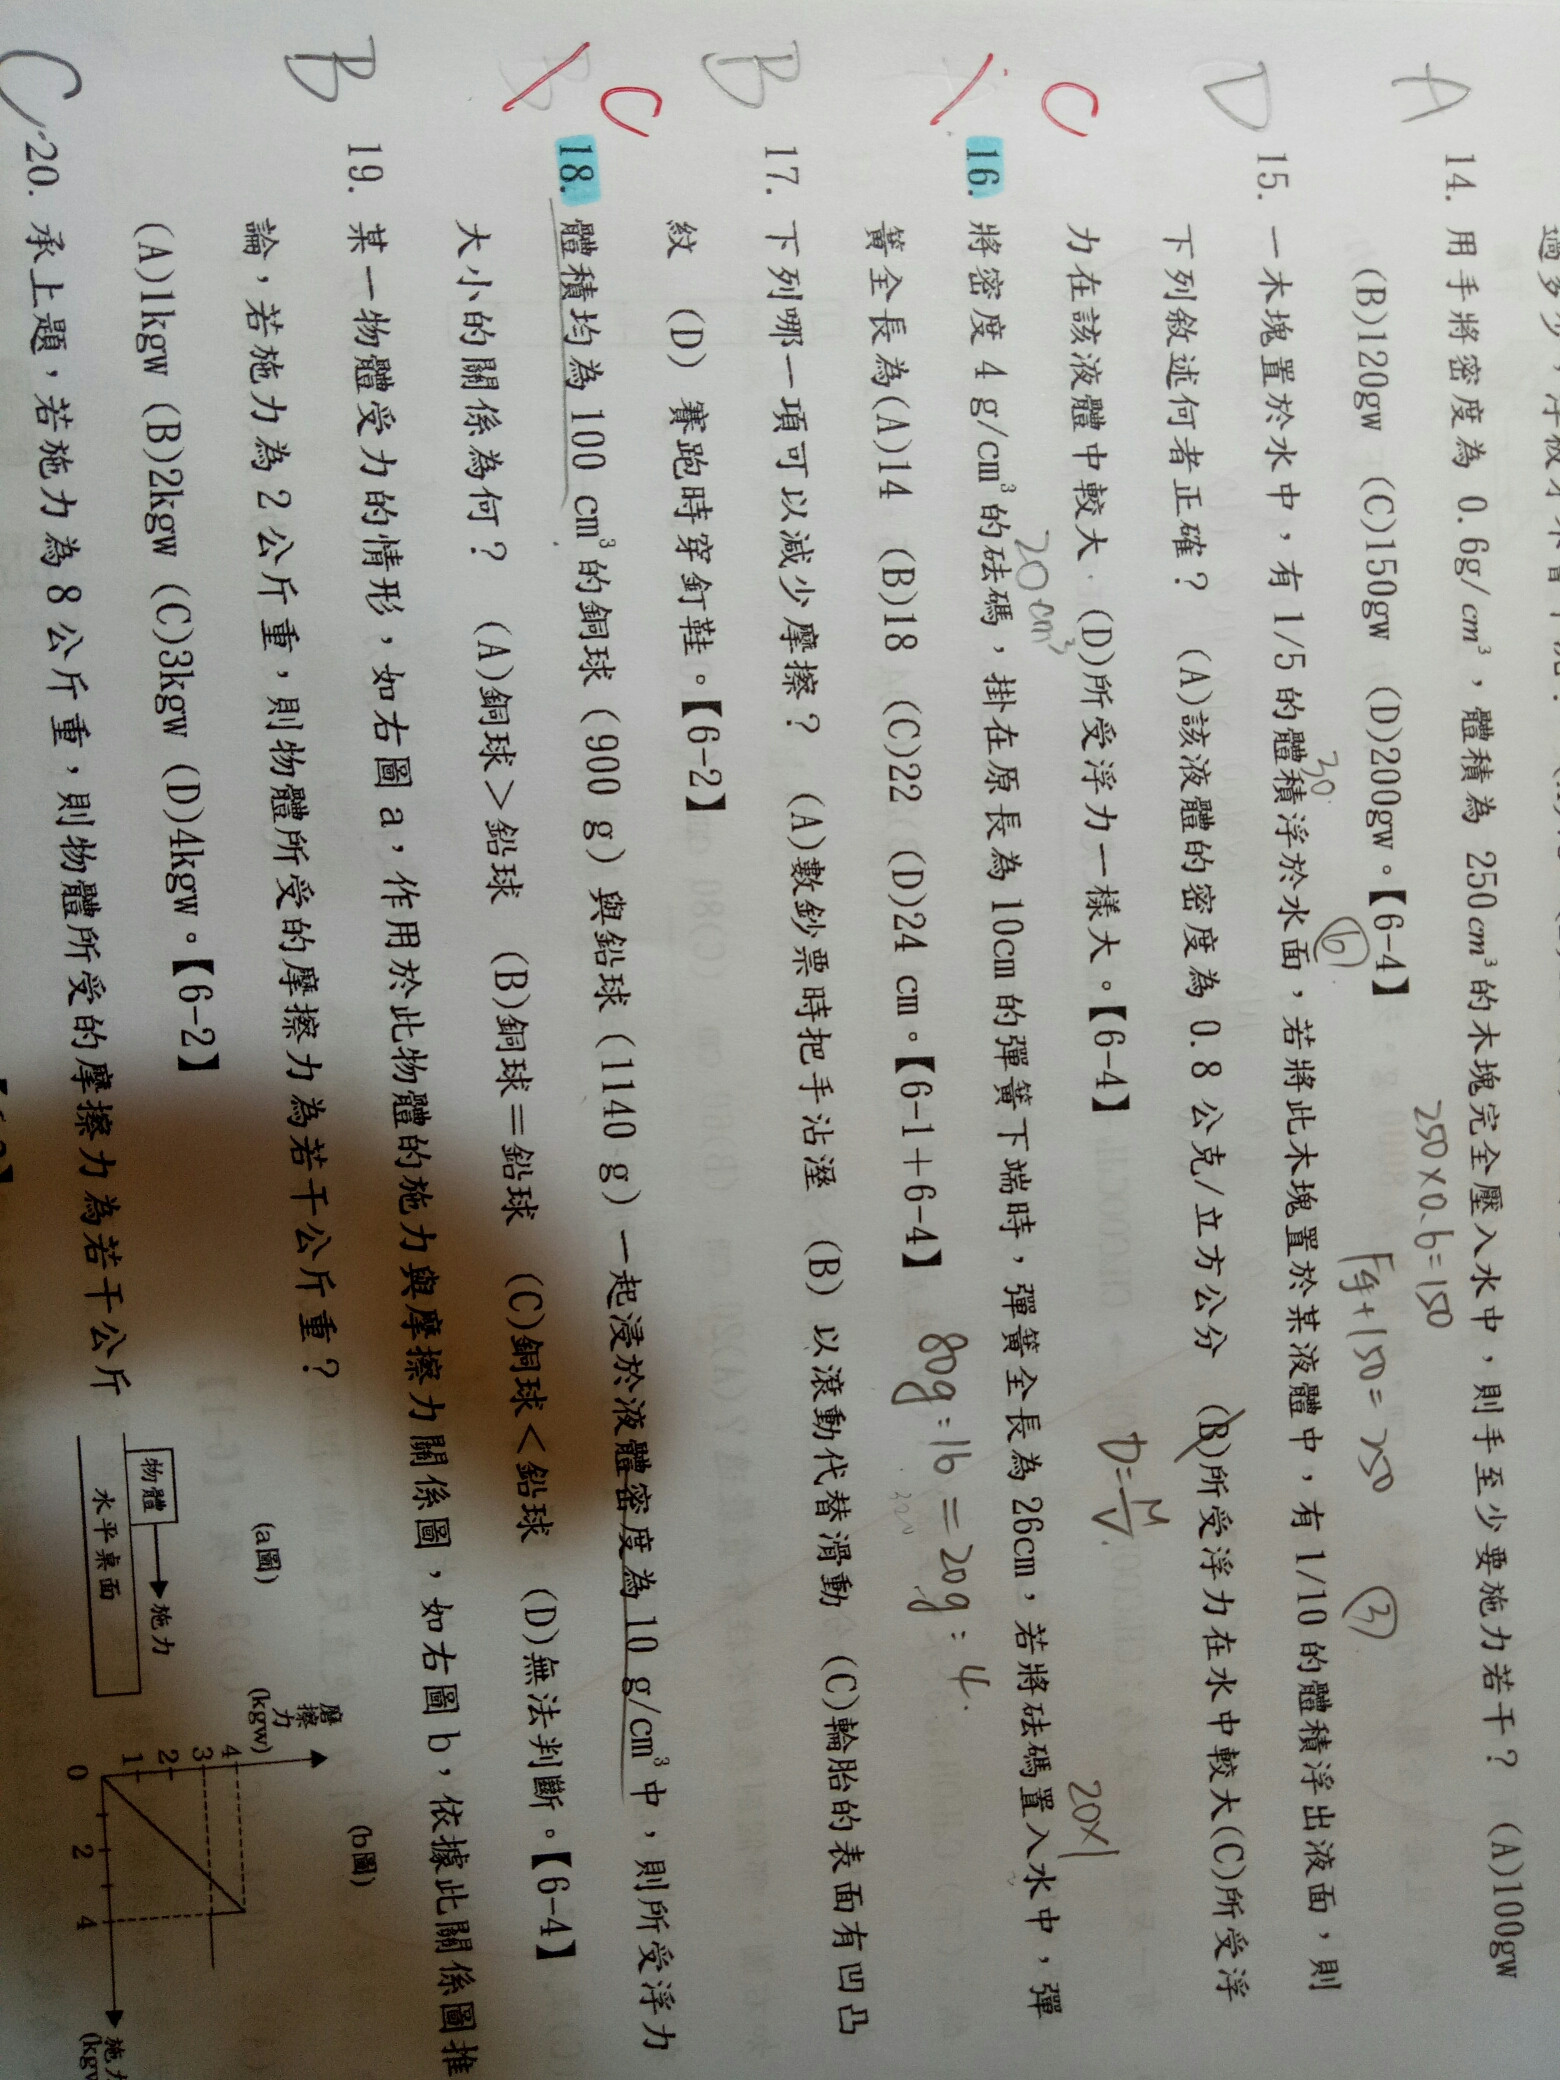 14. 用手將密度為 0.6g/cm³，體積為 250cm³的木塊完全壓入水中，則手至少要施力若干？ (A)100gw
(B)120gw (C)150gw (D)200gw。【6-4】
250×0.6=150
Fg+150=250
A
15. 一木塊置於水中，有 1/5 的體積浮於水面，若將此木塊置於某液體中，有 1/10 的體積浮出液面，則
下列敘述何者正確？ (A)該液體的密度為 0.8 公克/立方公分 (B)所受浮力在水中較大(C)所受浮
力在該液體中較大 (D)所受浮力一樣大。【6-4】
D
D=M/V
20×1
20cm³
C
16. 將密度 4 g/cm³的砝碼，掛在原長為 10cm 的彈簧下端時，彈簧全長為 26cm，若將砝碼置入水中，彈
簧全長為(A)14 (B)18 (C)22 (D)24 cm。【6-1+6-4】
80g:16=20g:4
17. 下列哪一項可以減少摩擦？ (A)數鈔票時把手沾溼 (B) 以滾動代替滑動 (C)輪胎的表面有凹凸
紋 (D) 賽跑時穿釘鞋。【6-2】
B
C
18. 體積均為 100 cm³的銅球（900 g）與鉛球（1140 g）一起浸於液體密度為 10 g/cm³中，則所受浮力
大小的關係為何？ (A)銅球＞鉛球 (B)銅球＝鉛球 (C)銅球＜鉛球 (D)無法判斷。【6-4】
B
19. 某一物體受力的情形，如右圖 a，作用於此物體的施力與摩擦力關係圖，如右圖 b，依據此關係圖推
論，若施力為 2 公斤重，則物體所受的摩擦力為若干公斤重？
(A)1kgw (B)2kgw (C)3kgw (D)4kgw。【6-2】
B
20. 承上題，若施力為 8 公斤重，則物體所受的摩擦力為若干公斤
C
(a圖)
物體
施力
水平桌面
(b圖)
摩擦力
(kgw)
4
3
2
1
0 2 4